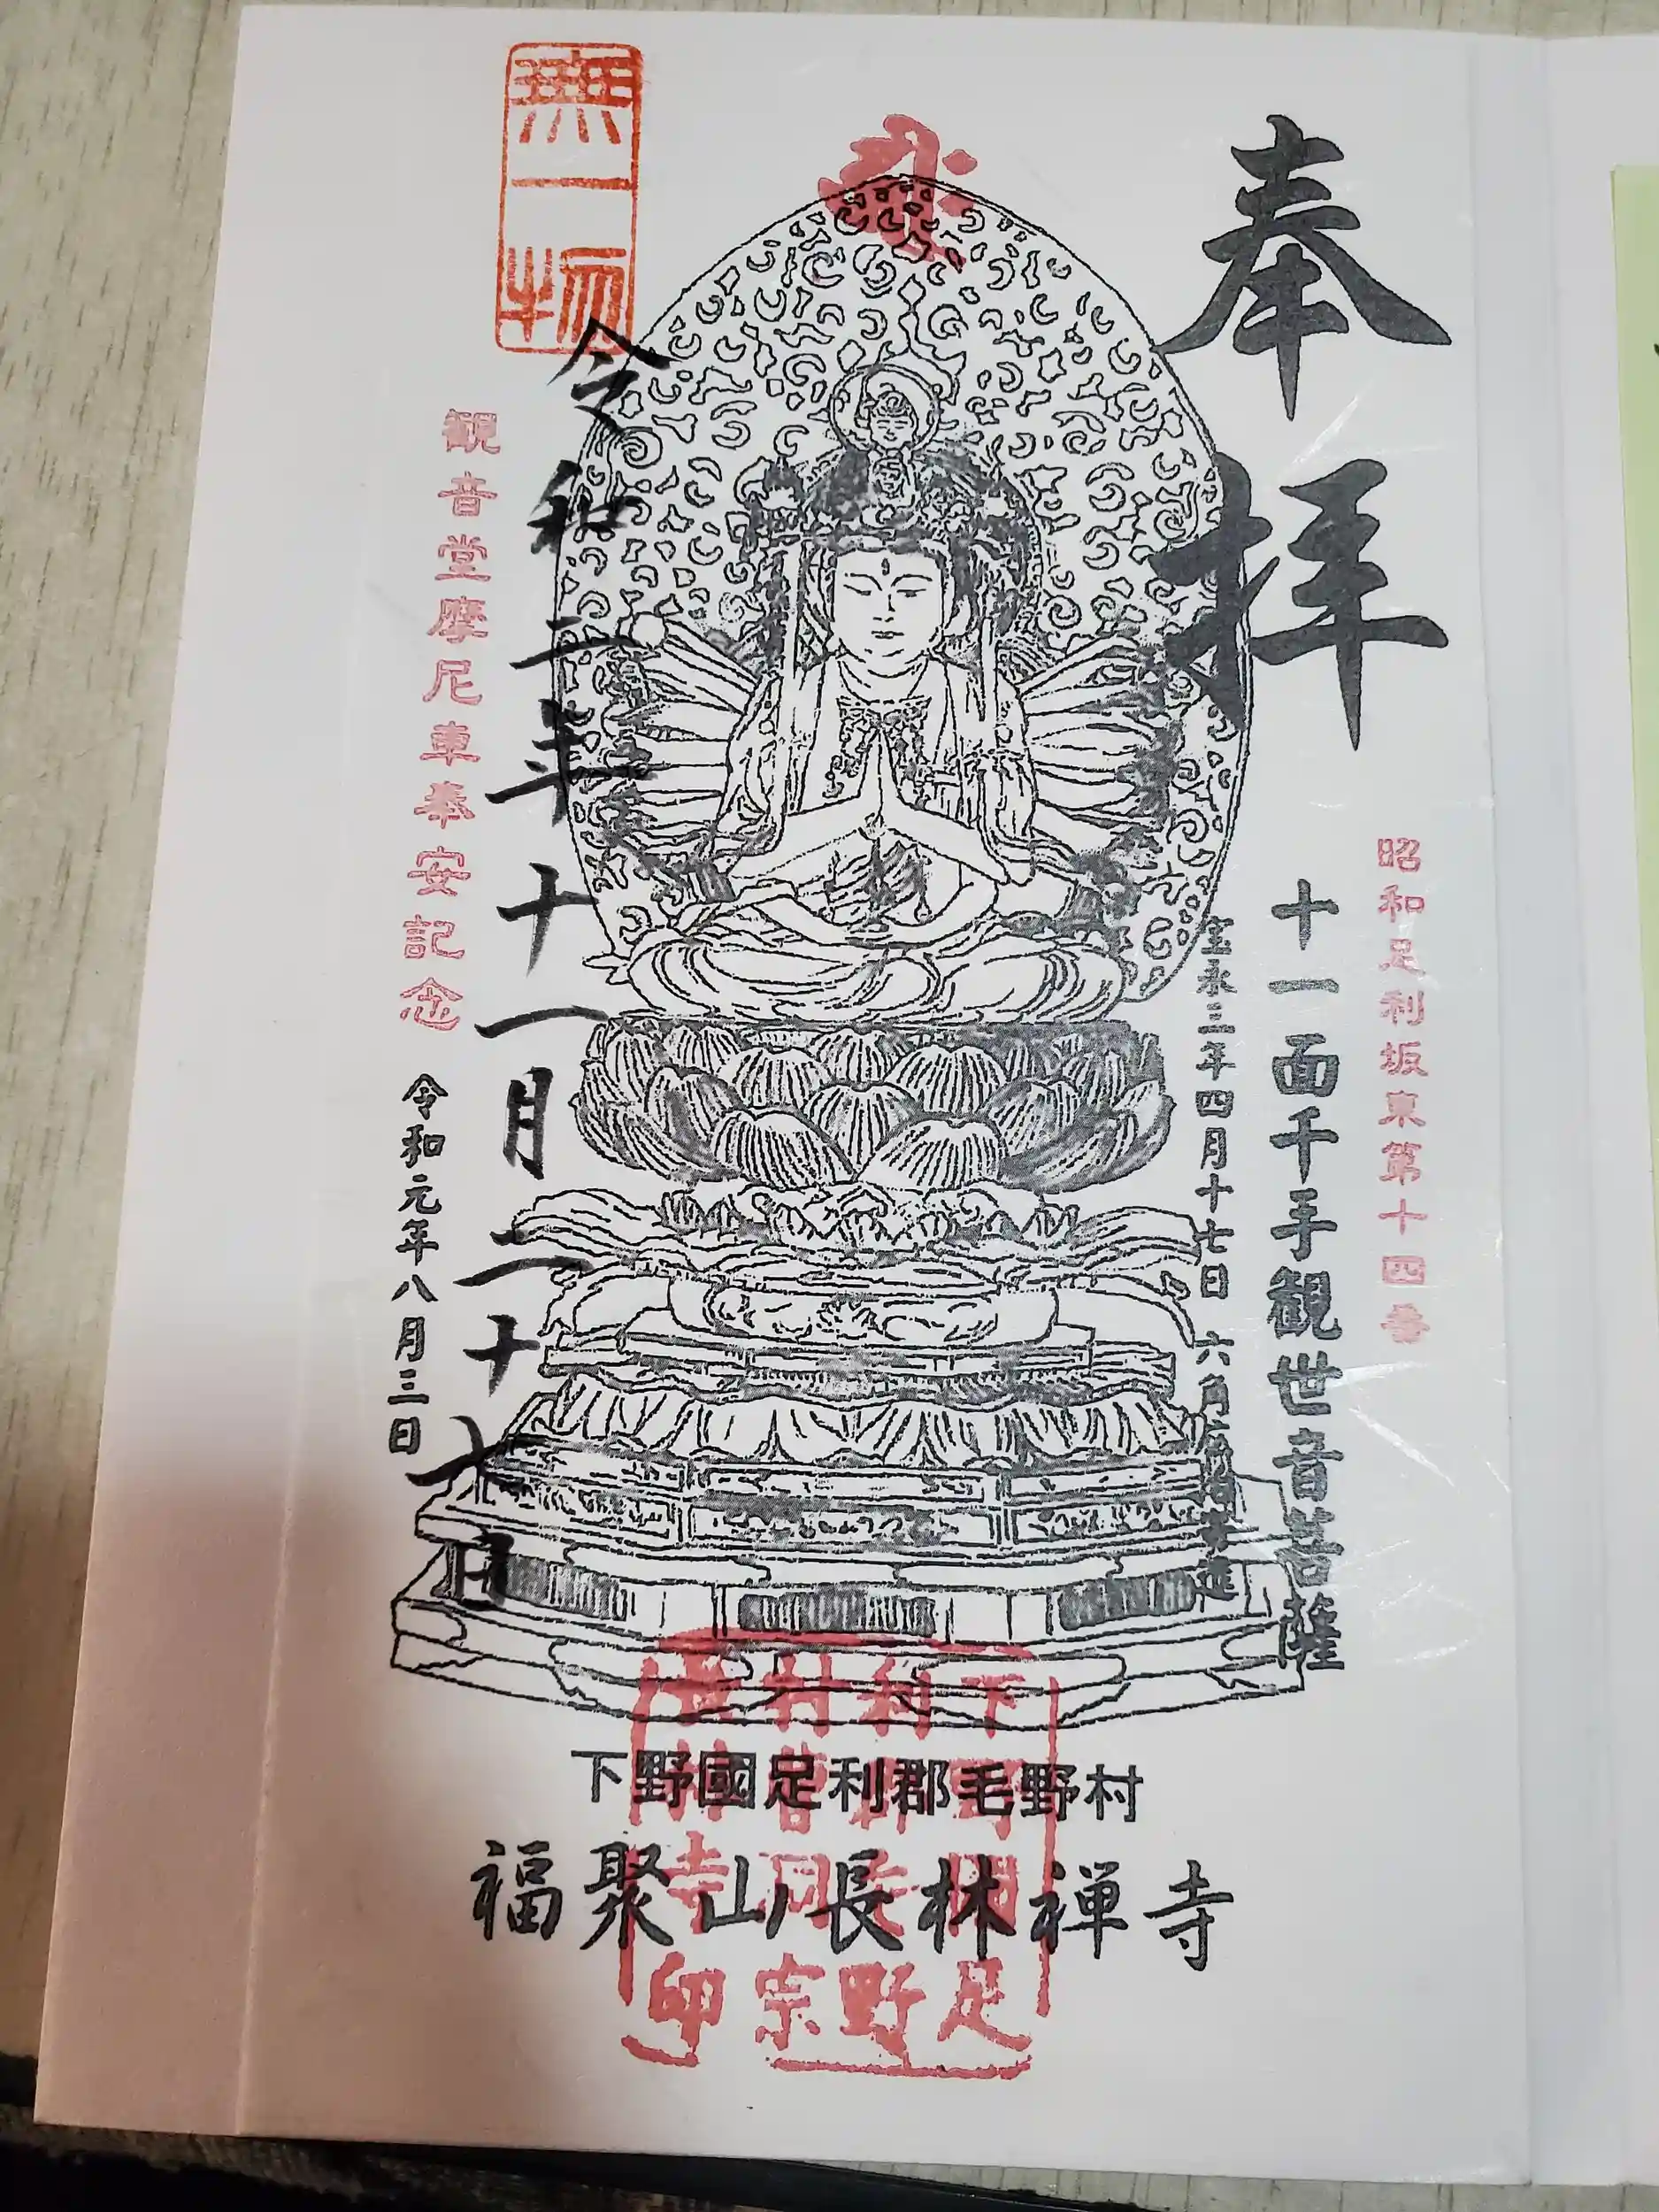 昭和足利坂東第十四番
奉拝
十一面千手観世音菩薩
宝永三年四月十七日 六角
令和二年十一月二十六日
無一物
観音堂摩尼車奉安記念
令和元年八月三日
下野國足利郡毛野村
福聚山長林禅寺
下野國足
利郡毛野
村曹洞宗
長林寺印